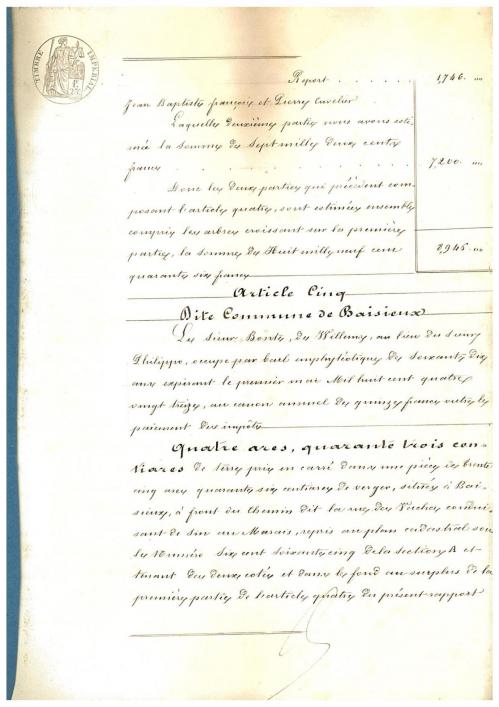 TIMBRE IMPERIAL
Report . . . . . . . 1,746. "
Jean Baptiste françois et Pierre Cuvelier
Laquelle deuxième partie nous avons esti-
mée la somme de Sept mille deux cents
francs . . . . . . . . 7,200. "
Donc les deux parties qui précèdent com-
posant l'article quatre, sont estimées ensemble
compris les arbres croissant sur la première
partie, la somme de Huit mille neuf cent 8,946 "
quarante six francs
Article Cinq
Dite Commune de Baisieux
Le Sieur Bonte, de Willems, au lieu du sieur
Philippe, occupe par bail emphytéotique de Soixante dix
ans expirant le premier mai Mil huit cent quatre
vingt treize, au canon annuel de quinze francs outre le
paiement des impôts
Quatre ares, quarante trois cen-
tiares de terre pris en carré dans une pièce de trente
cinq ares quarante six centiares de verger, située à Bai-
sieux, à front du Chemin dit la rue des Vaches condui-
sant de sin au Marais, repris au plan cadastral sous
le Numéro Six cent soixante cinq de la section A et
tenant des deux cotés et dans le fond au surplus de la
première partie de l'article quatre du présent rapport